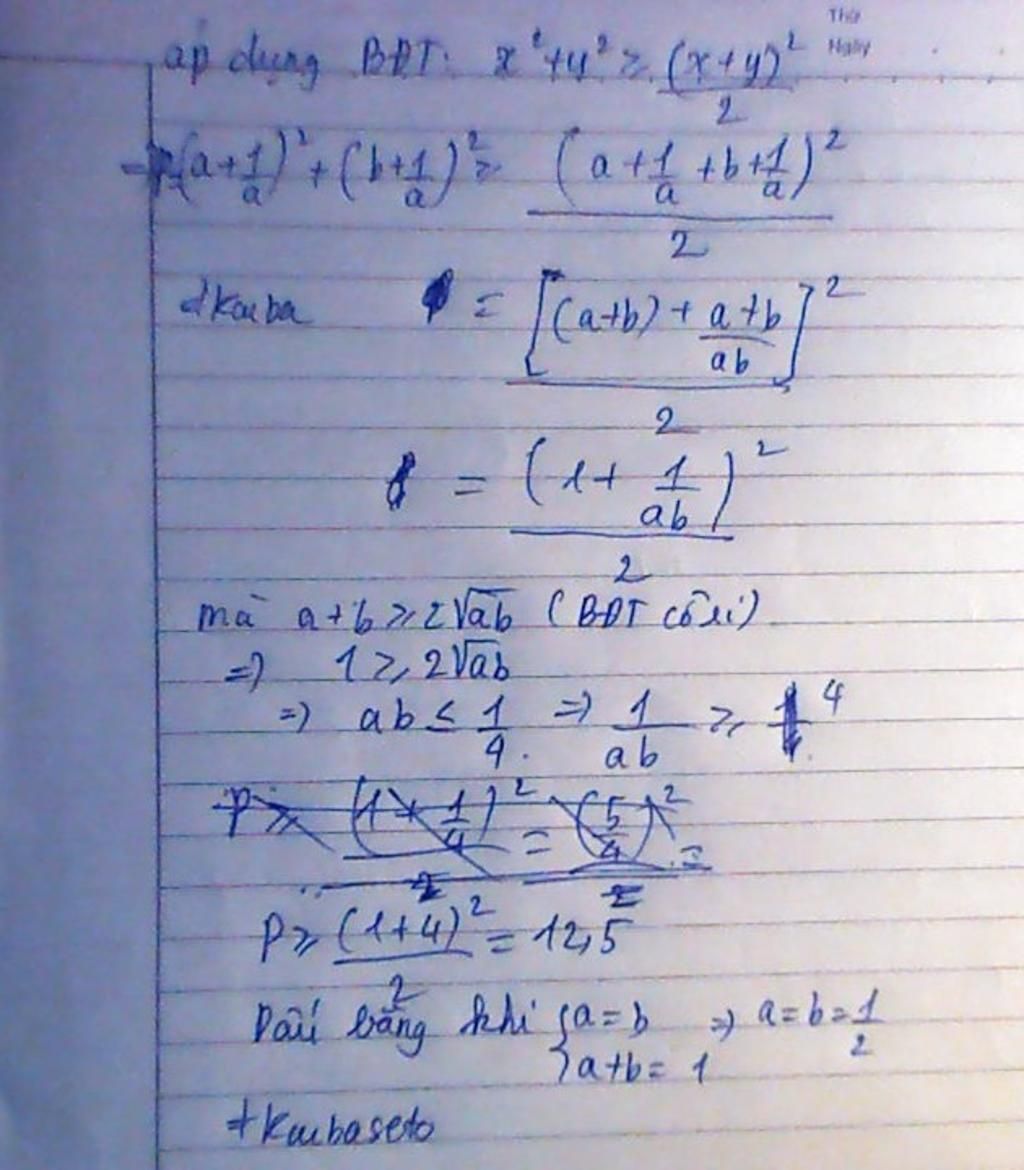 Thứ
Ngày
áp dụng BĐT: x² + y² ≥ (x+y)²/2
(a + 1/a)² + (b + 1/a)² ≥ (a + 1/a + b + 1/a)²/2
= [(a+b) + (a+b)/ab]²/2
= (1 + 1/ab)²/2
mà a + b ≥ 2√ab (BĐT cô si)
=) 1 ≥ 2√ab
=) ab ≤ 1/4. =) 1/ab ≥ 4
P ≥ (1 + 1/4)²/2 = (5/4)²/2 =
P ≥ (1+4)²/2 = 12,5
Dấu bằng khi { a = b =) a = b = 1/2
a + b = 1
+Kaibaseto